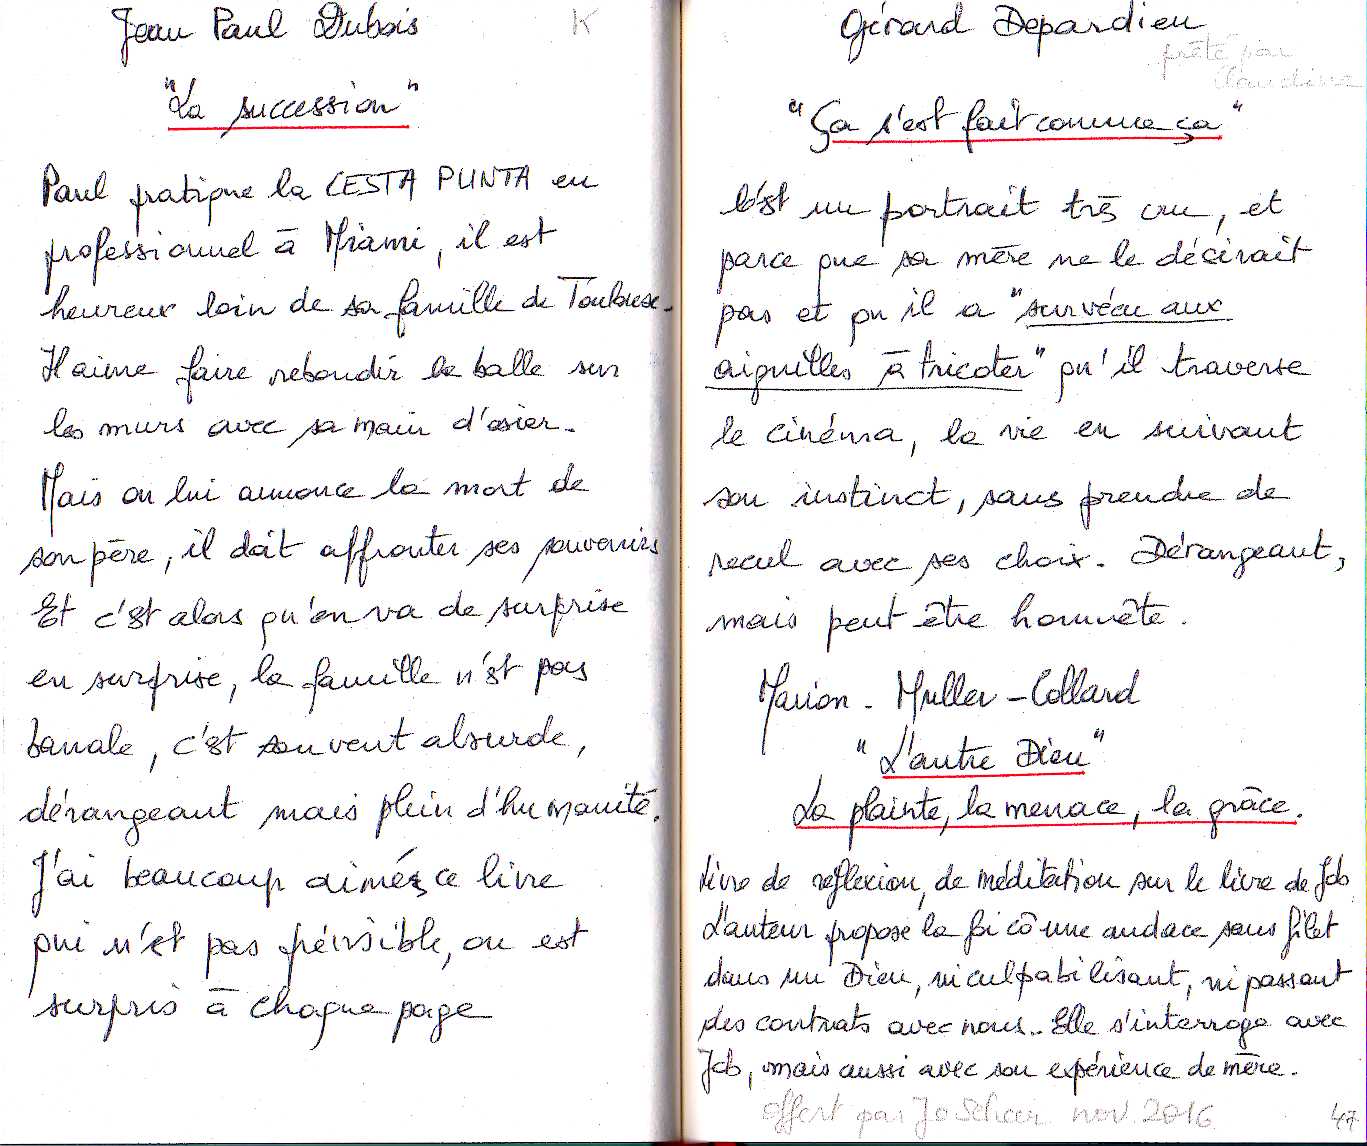 Jean Paul Dubois K
"La succession"
Paul pratique la CESTA PUNTA en
professionnel à Miami, il est
heureux loin de sa famille de Toulouse.
Il aime faire rebondir la balle sur
les murs avec sa main d'osier.
Mais on lui annonce la mort de
son père, il doit affronter ses souvenirs
Et c'est alors qu'on va de surprise
en surprise, la famille n'est pas
banale, c'est souvent absurde,
dérangeant mais plein d'humanité.
J'ai beaucoup aimé ce livre
qui n'est pas prévisible, on est
surpris à chaque page
Gérard Depardieu
prêté par
Claudine
"Ça s'est fait comme ça"
C'est un portrait très cru, et
parce que sa mère ne le décirait
pas et qu'il a "survécu aux
aiguilles à tricoter" qu'il traverse
le cinéma, la vie en suivant
son instinct, sans prendre de
recul avec ses choix. Dérangeant,
mais peut être honnête.
Marion - Muller - Collard
"L'autre Dieu"
La plainte, la menace, la grâce.
Livre de réflexion, de méditation sur le livre de Job
L'auteur propose la foi cô une audace sans filet
dans un Dieu, ni culpabilisant, ni passant
des contrats avec nous.. Elle s'interroge avec
Job, mais aussi avec son expérience de mère.
offert par Jo Scheer nov. 2016
47